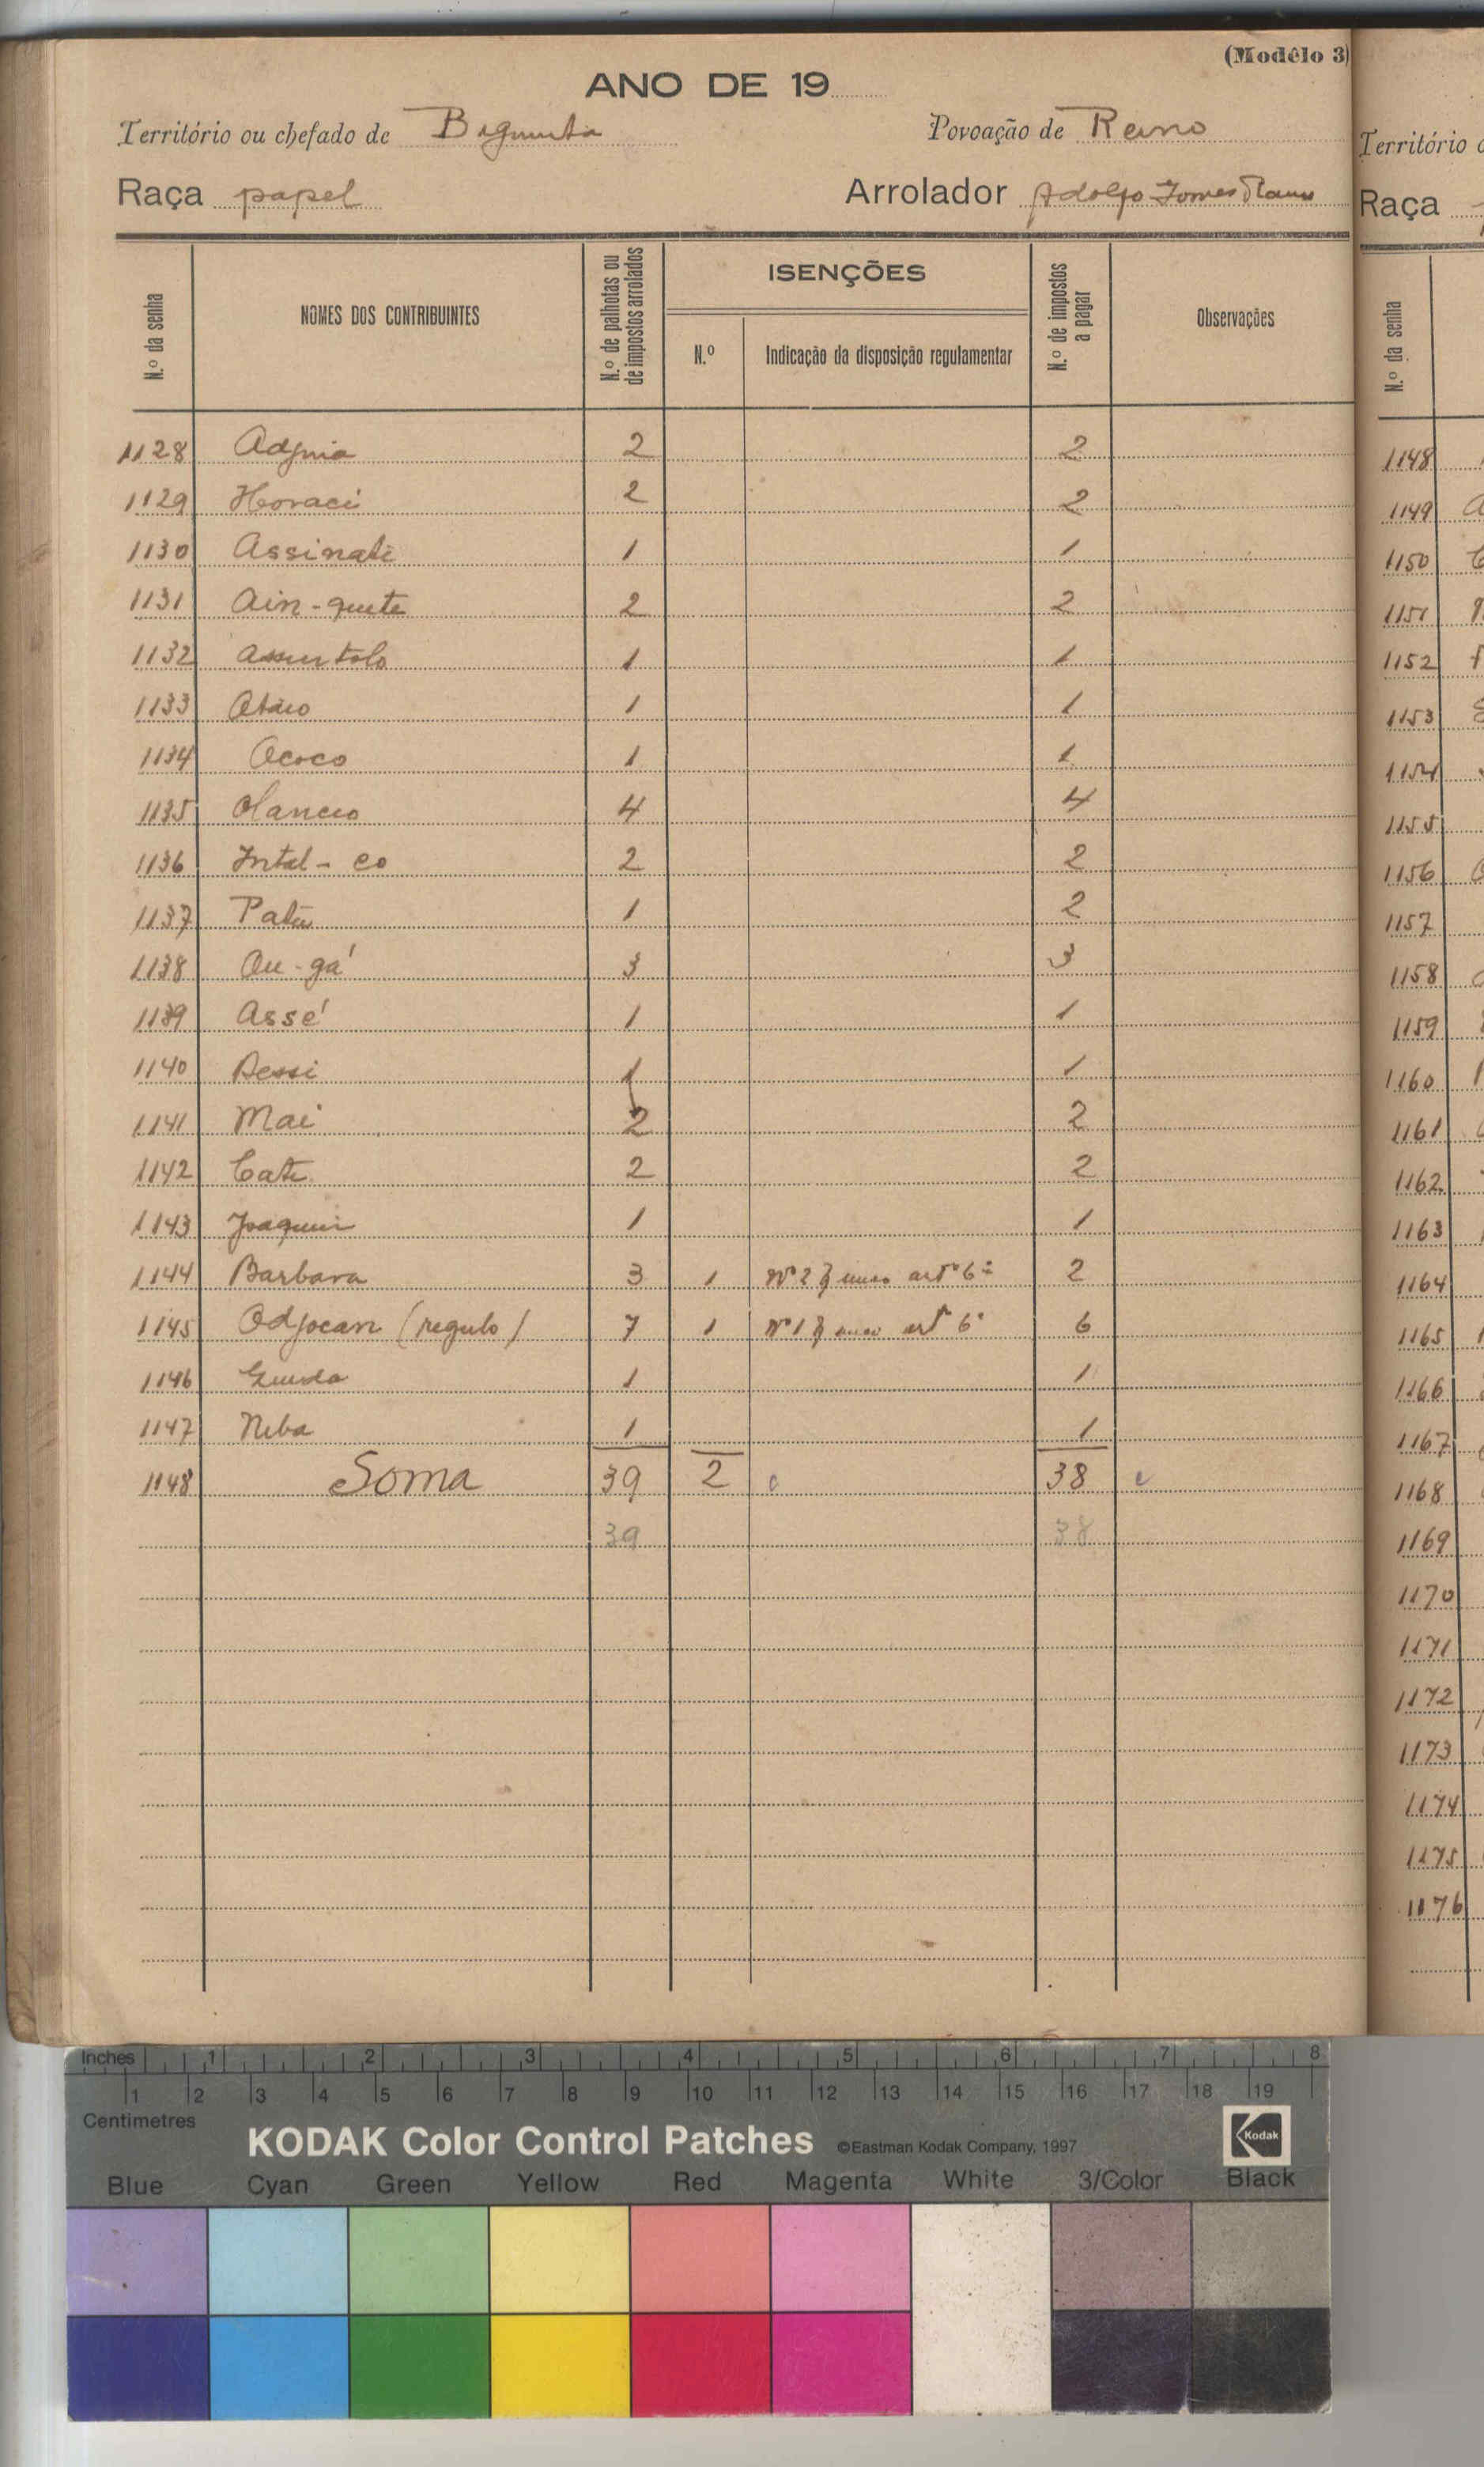 (Modêlo 3)
ANO DE 19
Território ou chefado de Bigimita Povoação de Reino
Raça papel Arrolador Adolfo Gomes Ramos
N.º da senha NOMES DOS CONTRIBUINTES N.º de palhotas ou de impostos arrolados ISENÇÕES N.º de impostos a pagar Observações
N.º Indicação da disposição regulamentar
1128 2 2
1129 Horaci 2 2
1130 Assinate 1 1
1131 Ain-quete 2 2
1132 1 1
1133 1 1
1134 Ococo 1 1
1135 4 4
1136 Intal-co 2 2
1137 1 2
1138 Ou-gá 3 3
1139 Assé 1 1
1140 Bessi 1 1
1141 Mai 2 2
1142 Cati 2 2
1143 Joaquim 1 1
1144 Barbara 3 1 Nº 2 § unico artº 6º 2
1145 Odjocan (regulo) 7 1 Nº 1 § unico artº 6º 6
1146 1 1
1147 Niba 1 1
1148 Soma 39 2 38
39 38
Território
Raça
N.º da senha
1148
1149
1150
1151
1152
1153
1154
1155
1156
1157
1158
1159
1160
1161
1162
1163
1164
1165
1166
1167
1168
1169
1170
1171
1172
1173
1174
1175
1176
Inches 1 2 3 4 5 6 7 8
1 2 3 4 5 6 7 8 9 10 11 12 13 14 15 16 17 18 19
Centimetres
KODAK Color Control Patches ©Eastman Kodak Company, 1997 Kodak
Blue Cyan Green Yellow Red Magenta White 3/Color Black